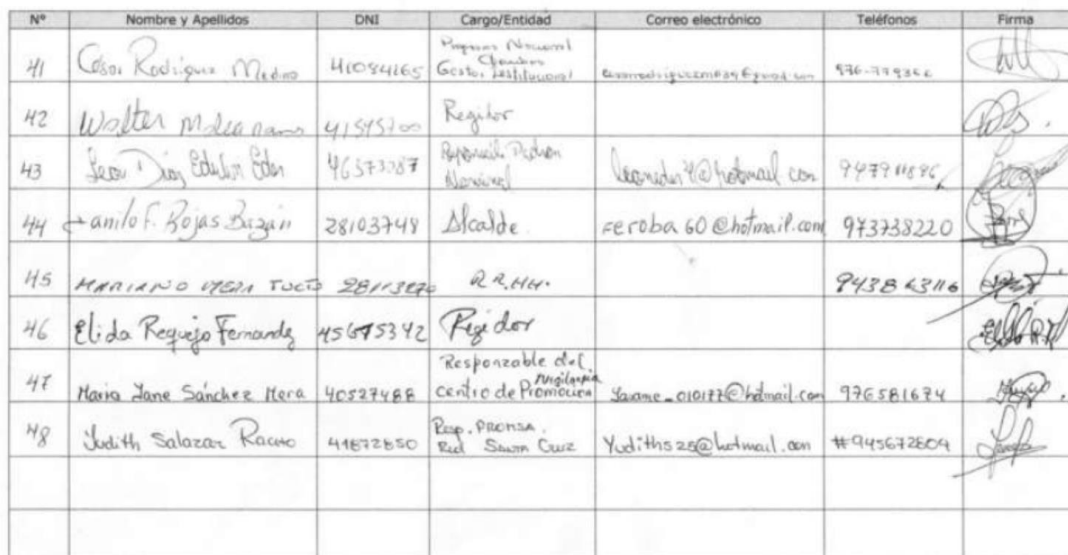 Nº Nombre y Apellidos DNI Cargo/Entidad Correo electrónico Teléfonos Firma
41 César Rodríguez Medina 41084265 Programa Nacional Gestor Institucional 976-779366
42 Walter 41545700 Regidor
43 Leon Diaz Edulin Eder 46573287 Padron Nominal leoneder4@hotmail.com 947911896
44 Danilo F. Rojas Bazán 28103749 Alcalde feroba60@hotmail.com 973738220
45 MARIANO TUCTO RR.HH.
46 Elida Requejo Fernandez 45675342 Regidor
47 Maria Jane Sánchez Mera 40527488 Responzable del centro de Promocion Vigilancia 976581674
48 Judith Salazar 41872850 Resp. PROMSA. Red Santa Cruz Yudiths25@hotmail.com #945672804